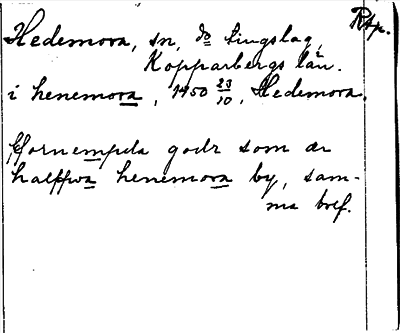 Rtp.
Hedemora, sn, do tingslag,
Kopparbergs län.
i henemora, 1450 23/10, Hedemora.
fornempda godz som är
halffwa henemora by, sam-
ma bref.